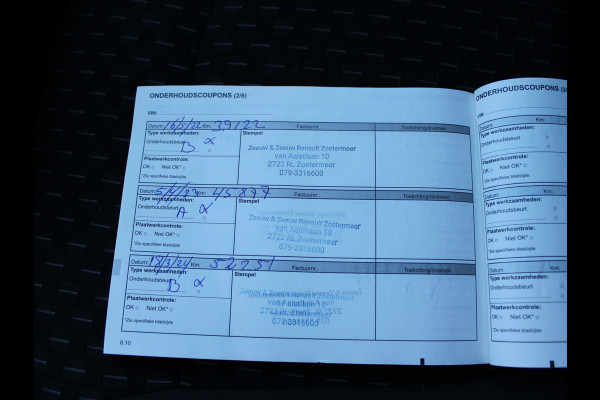 ONDERHOUDSCOUPONS (2/6)
VIN:
Datum: 16/5/22 Km: 39122 Factuurnr.: Toelichting/diversen
Type werkzaamheden: Stempel
Onderhoudsbeurt B α
Zeeuw & Zeeuw Renault Zoetermeer
van Aalstlaan 10
2722 RL Zoetermeer
079-3316600
Plaatwerkcontrole:
OK □ Niet OK* □
*Zie specifieke bladzijde
Datum: 5/4/23 Km: 45877 Factuurnr.: Toelichting/diversen
Type werkzaamheden: Stempel
Onderhoudsbeurt A α
Zeeuw & Zeeuw Renault Zoetermeer
van Aalstlaan 10
2722 RL Zoetermeer
079-3316600
Plaatwerkcontrole:
OK □ Niet OK* □
*Zie specifieke bladzijde
Datum: 18/3/24 Km: 52251 Factuurnr.: Toelichting/diversen
Type werkzaamheden: Stempel
Onderhoudsbeurt B α
Zeeuw & Zeeuw Renault Zoetermeer
van Aalstlaan 10
2722 RL Zoetermeer
079-3316600
Plaatwerkcontrole:
OK □ Niet OK* □
*Zie specifieke bladzijde
6.10
ONDERHOUDSCOUPONS
VIN:
Datum: Km:
Type werkzaamheden:
Onderhoudsbeurt
Plaatwerkcontrole:
OK □ Niet OK* □
*Zie specifieke bladzijde
Datum: Km:
Type werkzaamheden:
Onderhoudsbeurt
Plaatwerkcontrole:
OK □ Niet OK* □
*Zie specifieke bladzijde
Datum: Km:
Type werkzaamheden:
Onderhoudsbeurt
Plaatwerkcontrole:
OK □ Niet OK* □
*Zie specifieke bladzijde